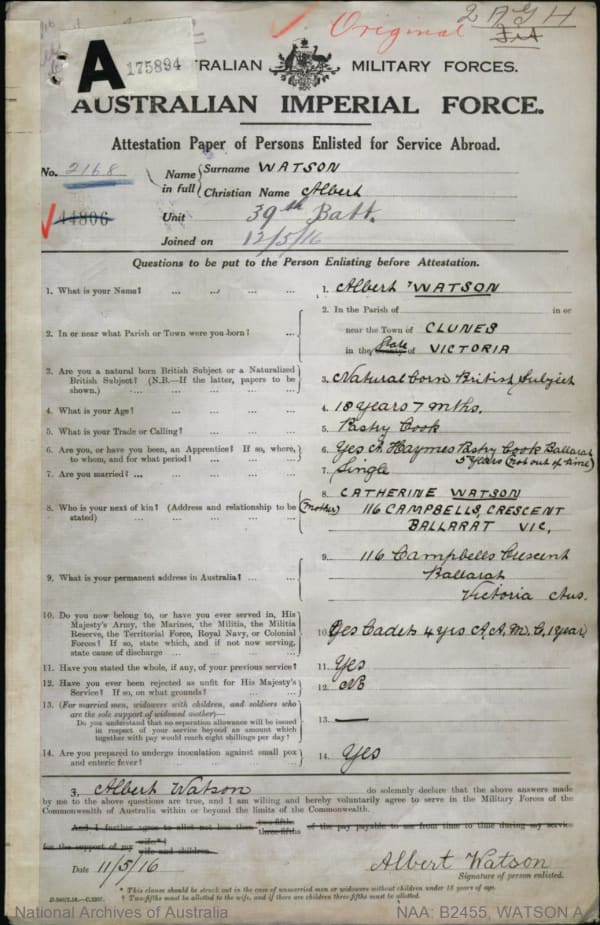 Original
2 AGH
A
175894
AUSTRALIAN MILITARY FORCES.
AUSTRALIAN IMPERIAL FORCE.
Attestation Paper of Persons Enlisted for Service Abroad.
No. 2168
44806
Name in full
Surname WATSON
Christian Name Albert
Unit 39th Batt.
Joined on 12/5/16
Questions to be put to the Person Enlisting before Attestation.
1. What is your Name? ... ... ... ...
1. Albert WATSON
2. In or near what Parish or Town were you born? ...
2. In the Parish of in or
near the Town of CLUNES
in the County State of VICTORIA
3. Are you a natural born British Subject or a Naturalized
British Subject? (N.B.—If the latter, papers to be
shown.) ... ... ... ...
3. Natural born British Subject
4. What is your Age? ... ... ... ...
4. 18 years 7 mths.
5. What is your Trade or Calling? ... ... ...
5. Pastry Cook
6. Are you, or have you been, an Apprentice? If so, where,
to whom, and for what period? ... ... ...
6. Yes A Haymes Pastry Cook Ballarat
5 years (not out of time)
7. Are you married? ... ... ... ...
7. Single
8. Who is your next of kin? (Address and relationship to be
stated) ... ... ...
8. CATHERINE WATSON
(Mother) 116 CAMPBELLS, CRESCENT
BALLARAT VIC,
9. What is your permanent address in Australia? ... ...
9. 116 Campbells Crescent
Ballarat
Victoria Aus.
10. Do you now belong to, or have you ever served in, His
Majesty's Army, the Marines, the Militia, the Militia
Reserve, the Territorial Force, Royal Navy, or Colonial
Forces? If so, state which, and if not now serving,
state cause of discharge ... ... ...
10. Yes Cadets 4 yrs A.A.M.C. 1 year
11. Have you stated the whole, if any, of your previous service?
11. Yes
12. Have you ever been rejected as unfit for His Majesty's
Service? If so, on what grounds? ... ...
12. No
13. (For married men, widowers with children, and soldiers who
are the sole support of widowed mother)—
Do you understand that no separation allowance will be issued
in respect of your service beyond an amount which
together with pay would reach eight shillings per day?
13. —
14. Are you prepared to undergo inoculation against small pox
and enteric fever? ... ... ...
14. Yes
I, Albert Watson do solemnly declare that the above answers made
by me to the above questions are true, and I am willing and hereby voluntarily agree to serve in the Military Forces of the
Commonwealth of Australia within or beyond the limits of the Commonwealth.
And I further agree to allot not less than two-fifths three-fifths of the pay payable to me from time to time during my service
for the support of my wife* wife and children.
Date 11/5/16
Albert Watson
Signature of person enlisted.
* This clause should be struck out in the case of unmarried men or widowers without children under 18 years of age.
† Two-fifths must be allotted to the wife, and if there are children three-fifths must be allotted.
National Archives of Australia
NAA: B2455, WATSON A